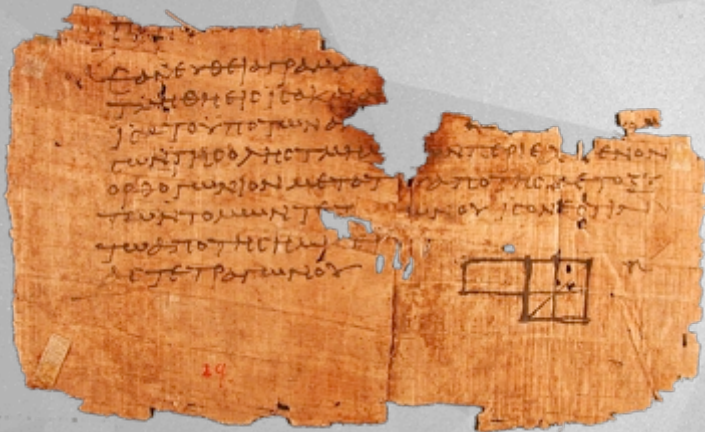 ΕΑΝΕΥΘΕΙΑΓΡΑΜ
ΤΜΗΘΗΕΙϹΙϹΑΚΑΙΑ
ΙϹΑΤΟΥΠΟΤΩΝΑ
ϹΩΝΤΗϹΟΛΗϹΤΜΗΜ ΩΝΠΕΡΙΕΧ ΜΕΝΟΝ
ΟΡΘΟΓΩΝΙΟΝΜΕΤΑΤ ΑΠΟΤΗϹΜΕΤΟΞΥ
ΤΩΝΤΟΜΩΝΤΕΤ ΩΝΟΥΙϹΟΝΕϹΤΙΝ
ΤΩΑΠΟΤΗϹΗΜΙ
ΑϹΤΕΤΡΑΓΩΝΟΥ
29